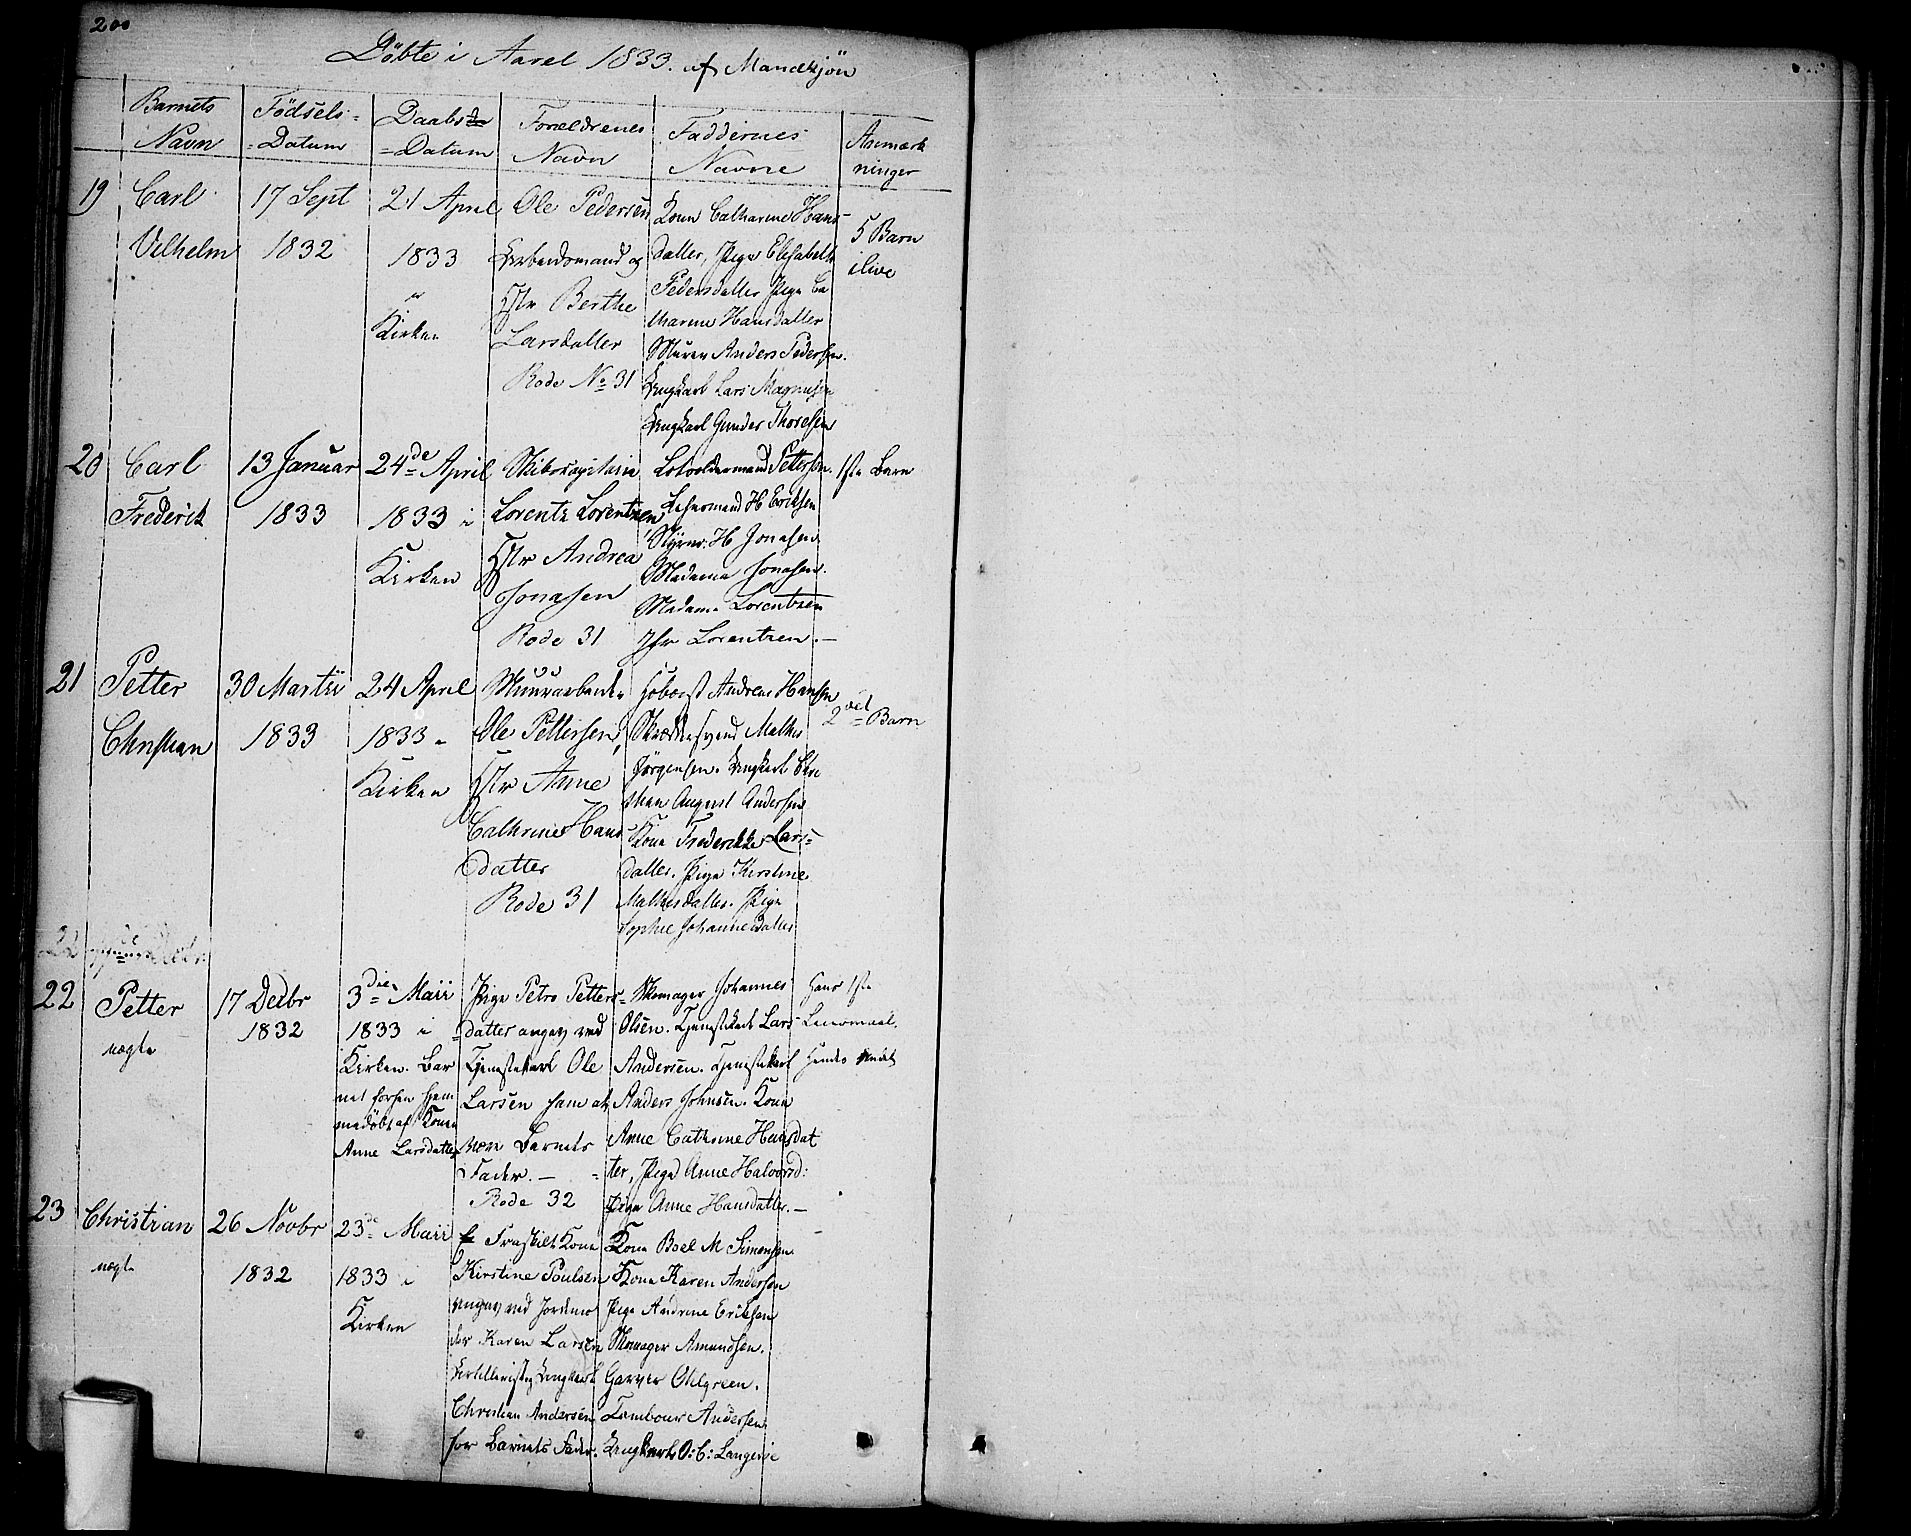 200
Döbte i Aaret 1833. af Mandkjön
Barnets Navn
Födsels-Datum
Daabs-Datum
Forældrenes Navn
Faddernes Navne
Anmærkninger
19
Carl
Vilhelm
17 Sept
1832
21 April
1833
Kirken
Ole Pedersen
Arbeidsmand og
Hstr Berthe
Larsdatter
Rode No 31
Kone Catharine Hans-
datter, Pige Elisabeth
Pedersdatter Pige Ca
tharine Hansdatter
Murer Anders Pedersen.
Ungkarl Lars Magnusen
Ungkarl Gunder Thoresen
5 Barn
ilive
20
Carl
Frederik
13 Januar
1833
24de April
1833 i
Kirken
Lorentz Lorentzen
Hstr Andrea
Jonasen
Rode 31
Pettersen.
H Eriksen
Styrm. H Jonasen
Madame Jonasen.
Madame Lorentzen
Jfr Lorentzen.
1ste Barn
21
Petter
Christian
30 Martii
1833
24 April
1833
Kirken
Muurarbeid.
Ole Pettersen,
Hstr Anne
Cathrine Hans
datter
Rode 31
Hoboist Andreas Hansen
Skrædersvend Mathis
Jörgensen. Ungkarl Chri
stian August Andersen
Kone Frederikke Lars-
datter. Pige Kirstine
Mathisdatter. Pige
Sophie Johannesdatter
2det Barn
22
22
Petter
uægte
17 Decbr
1832
3die Maii
1833 i
Kirken. Bar
net forhen hjem
medöbt af Kone
Anne Larsdatter
Pige Petro Petters-
datter angav ved
Tjenestekarl Ole
Larsen ham at
være Barnets
Fader.
Rode 32
Skomager Johannes
Olsen. Tjenestekarl Lars
Andersen. Tjenestekarl
Anders Johnsen. Kone
Anne Cathrine Hansdat
ter, Pige Anne Halvorsd:
Pige Anne Hansdatter.
Hans 1ste
Leiermaal.
Hendes andet
23
Christian
uægte
26 Novbr
1832
23de Maii
1833 i
Kirken
Fraskilt Kone
Kirstine Poulsen
angav ved Jordmo
der Karen Larsen
Artillerist Ungkarl
Christian Andersen
for Barnets Fader.
Kone Boel M Simonsen
Kone Karen Andersen
Pige Andrine Eriksen
Skomager Amundsen.
Garver Ohlgreen.
Tambour Andersen
Ungkarl O: C: Langerie